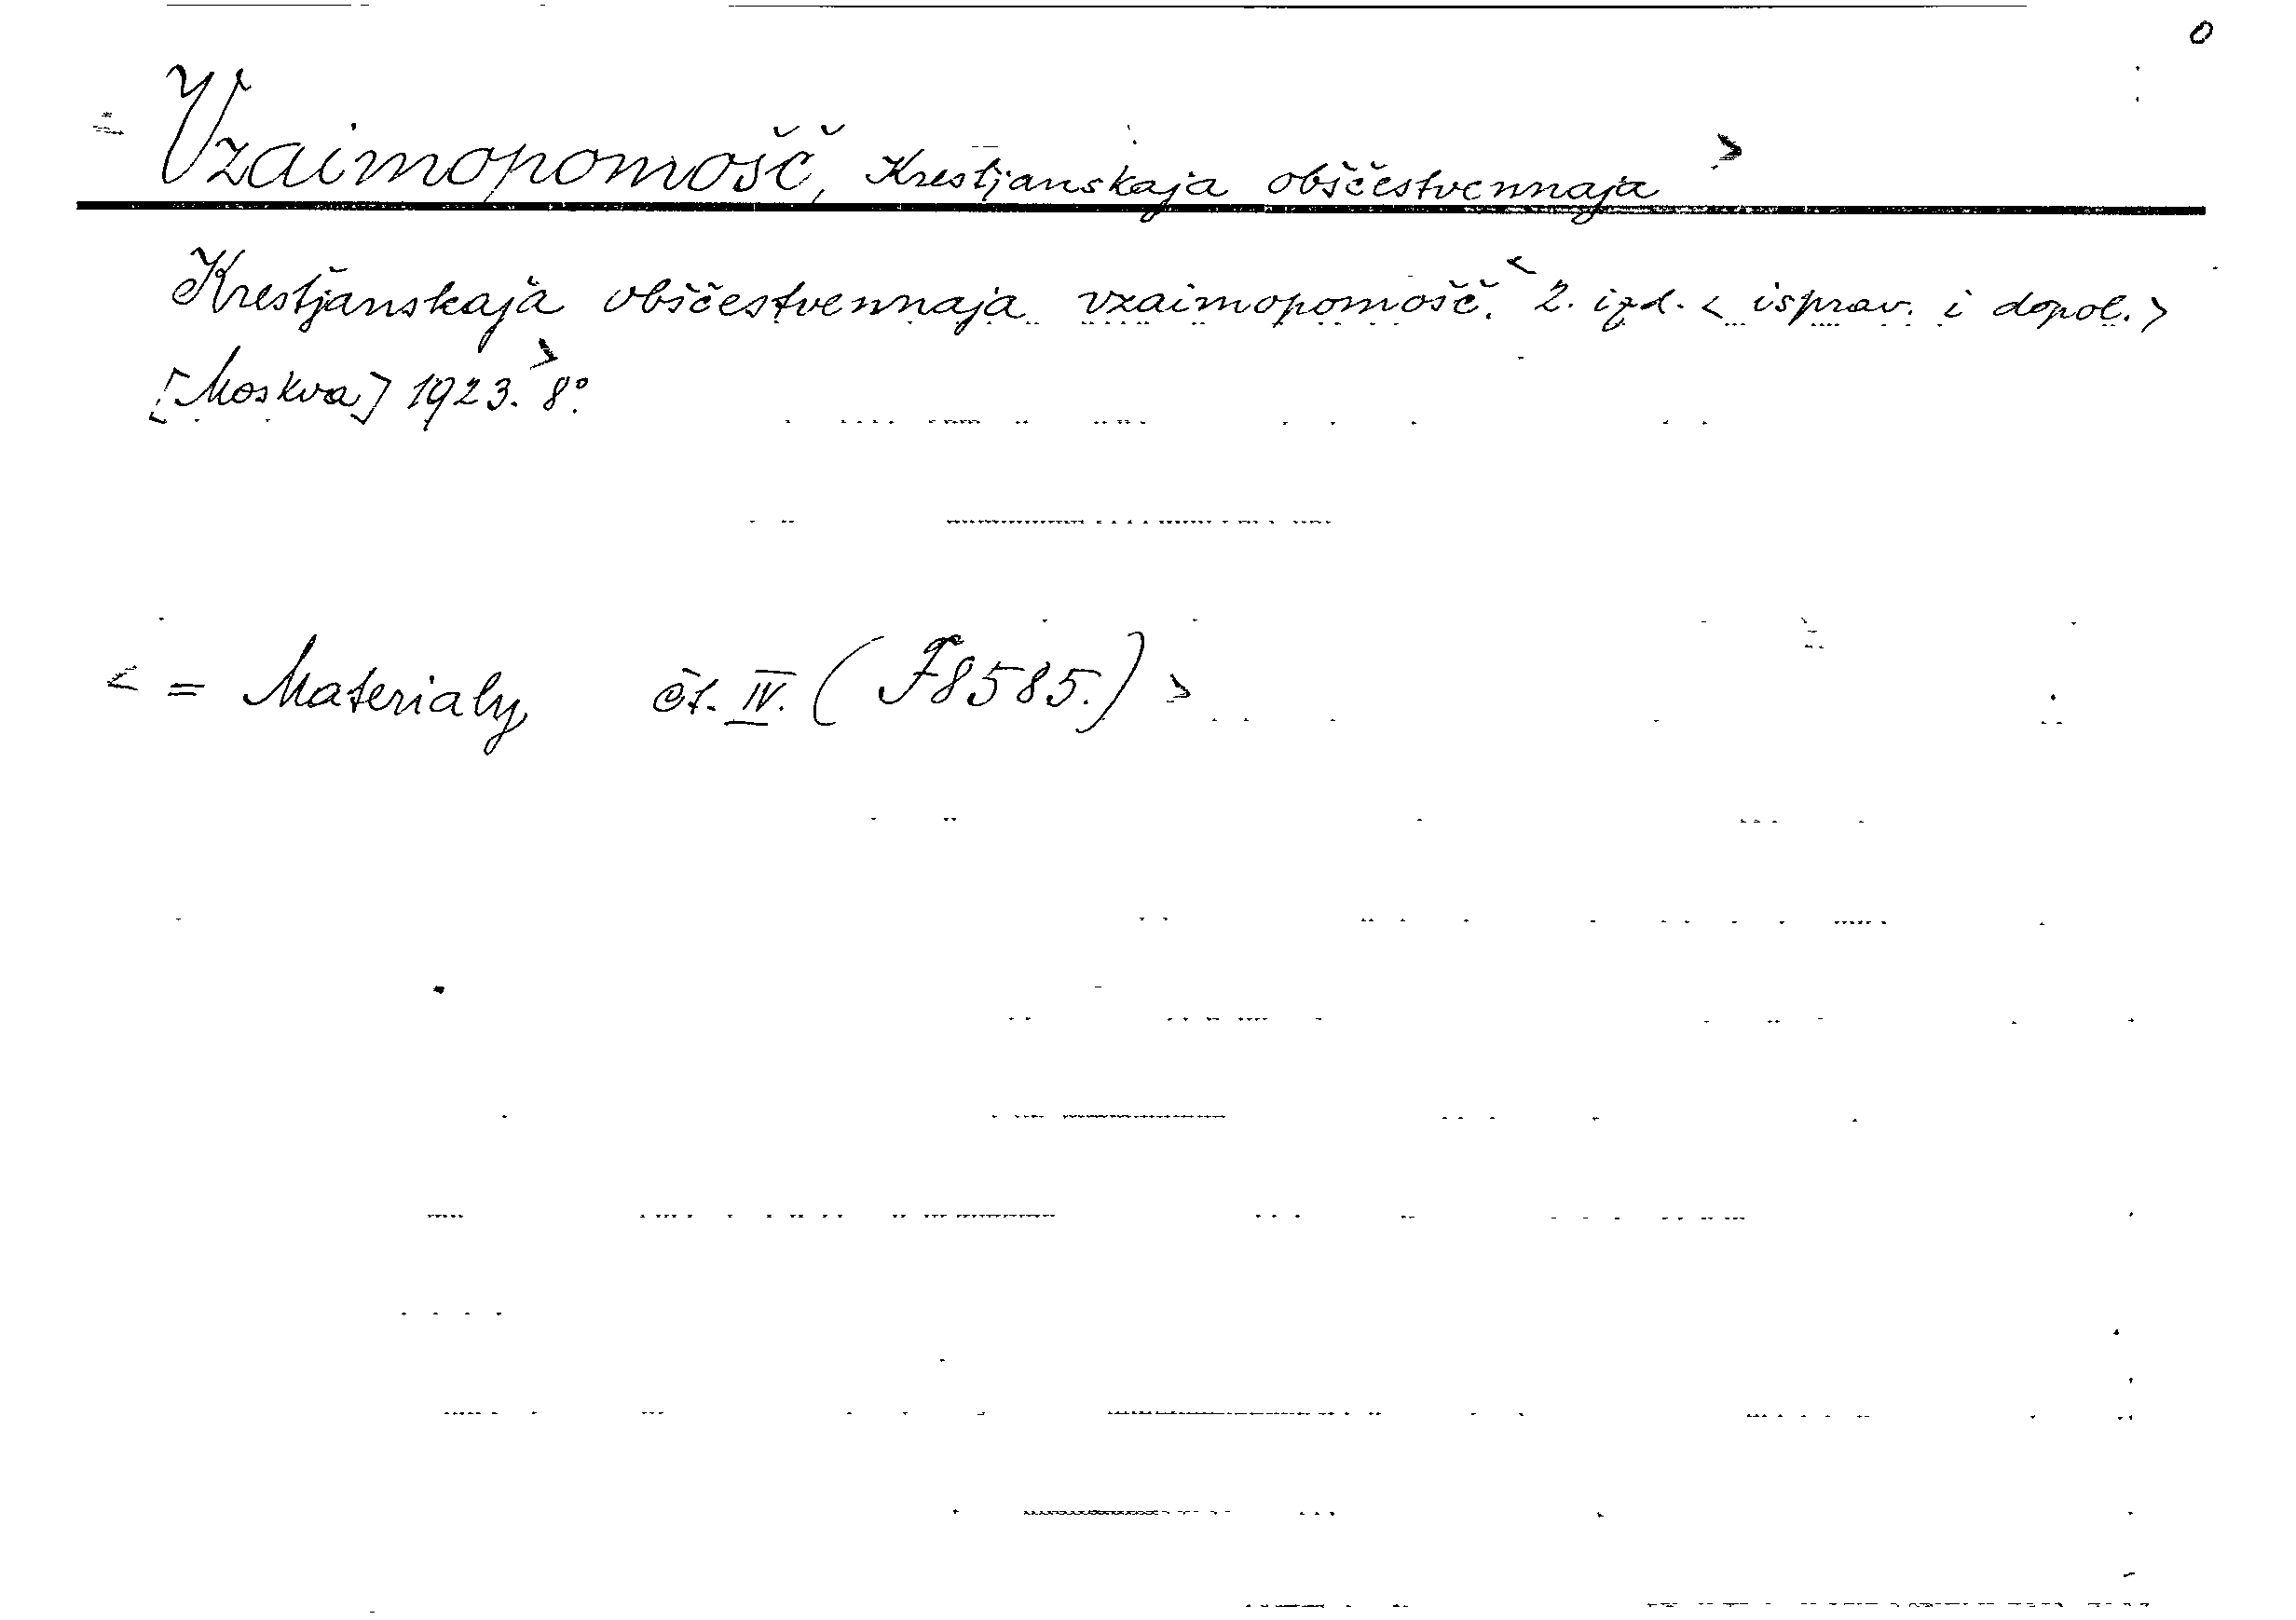 0
< Vzaimopomošč, Krestjanskaja obščestvennaja >
Krestjanskaja obščestvennaja vzaimopomošč. < 2. izd. < isprav. i dopol. >
[Moskva] 1923. > 8°.
< = Materialy čt. IV. (F8585.) >